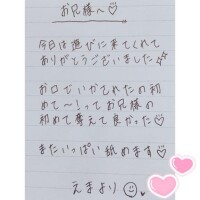 お兄様〜♡
今日は遊びに来てくれて
ありがとうございました✨
お口でいかてれたの初
めて〜！ってお兄様の
初めて奪えて良かった♡
またいっぱい舐めます♡
えまより